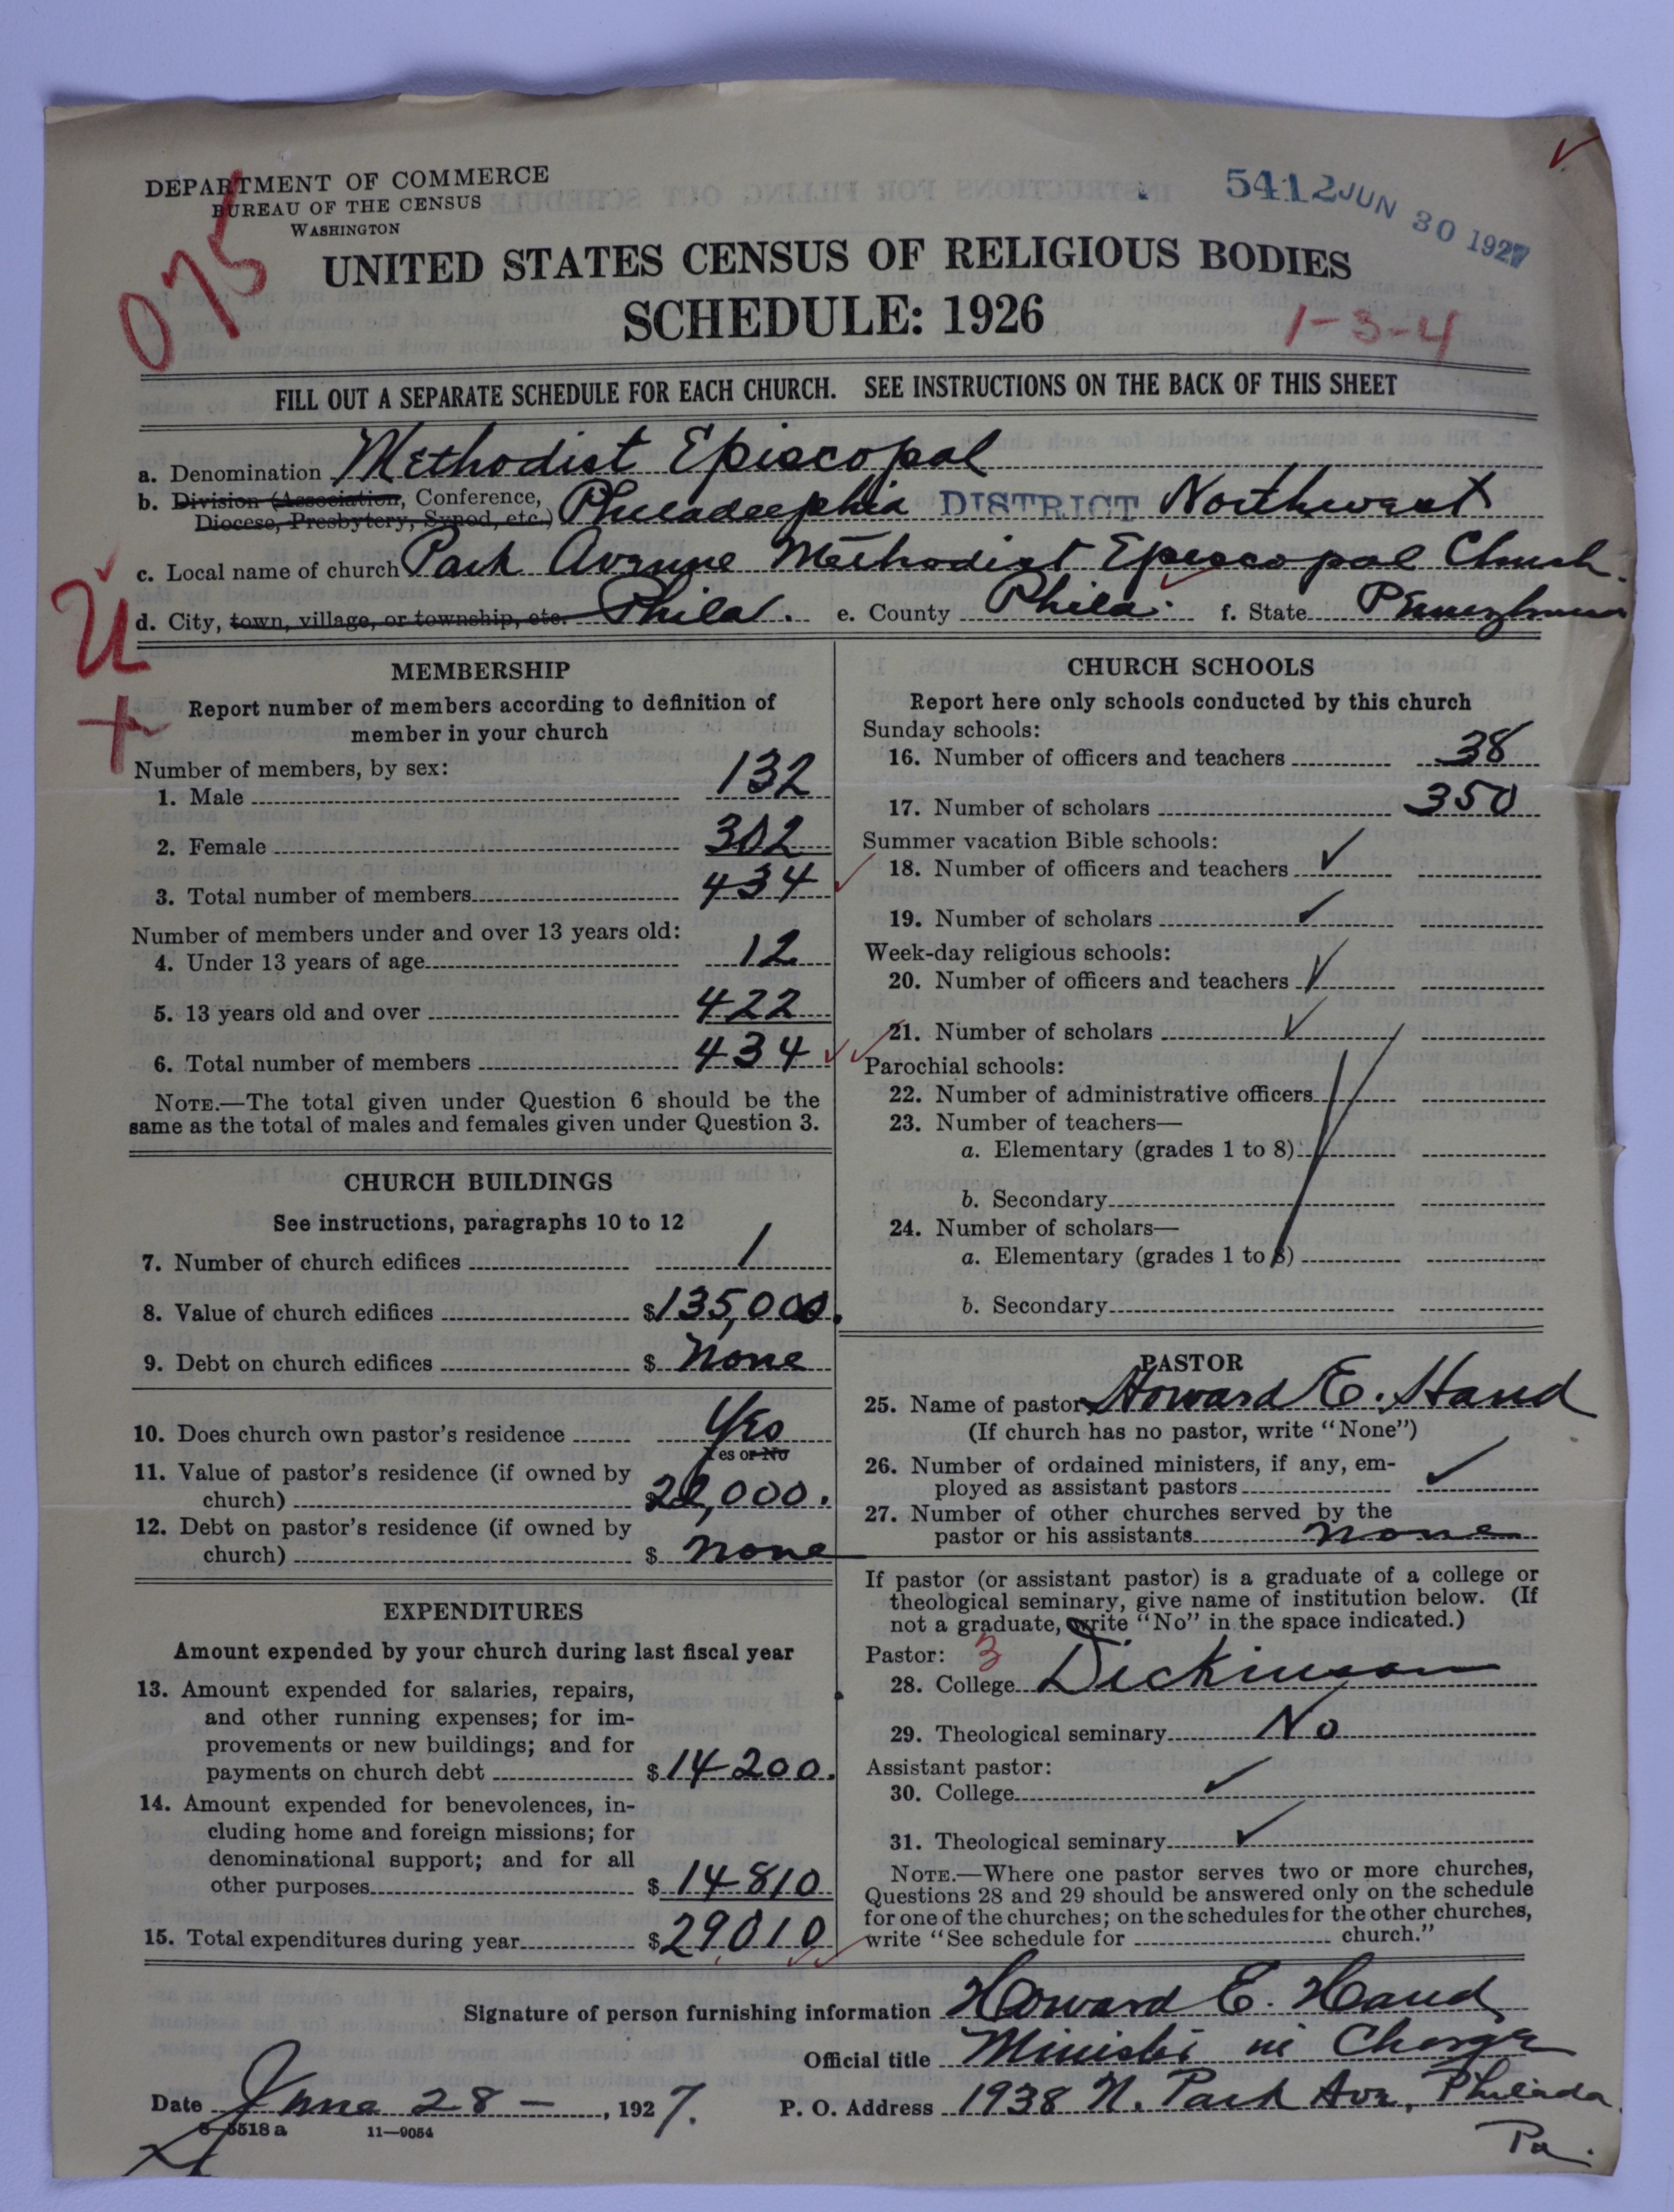 DEPARTMENT OF COMMERCE
BUREAU OF THE CENSUS
WASHINGTON
5412 JUN 30 1927
075
UNITED STATES CENSUS OF RELIGIOUS BODIES
SCHEDULE: 1926
1-3-4
FILL OUT A SEPARATE SCHEDULE FOR EACH CHURCH. SEE INSTRUCTIONS ON THE BACK OF THIS SHEET
a. Denomination Methodist Episcopal
b. Division (Association, Conference, Diocese, Presbytery, Synod, etc.) Philadelphia DISTRICT Northwest
c. Local name of church Park Avenue Methodist Episcopal Church.
d. City, town, village, or township, etc. Phila. e. County Phila. f. State Pennsylvania
U
+
MEMBERSHIP
Report number of members according to definition of
member in your church
Number of members, by sex:
1. Male 132
2. Female 302
3. Total number of members 434
Number of members under and over 13 years old:
4. Under 13 years of age 12
5. 13 years old and over 422
6. Total number of members 434
NOTE.—The total given under Question 6 should be the
same as the total of males and females given under Question 3.
CHURCH BUILDINGS
See instructions, paragraphs 10 to 12
7. Number of church edifices 1
8. Value of church edifices $135,000.
9. Debt on church edifices $ None
10. Does church own pastor's residence Yes
Yes or No
11. Value of pastor's residence (if owned by
church) $22,000.
12. Debt on pastor's residence (if owned by
church) $ None
EXPENDITURES
Amount expended by your church during last fiscal year
13. Amount expended for salaries, repairs,
and other running expenses; for im-
provements or new buildings; and for
payments on church debt $14200.
14. Amount expended for benevolences, in-
cluding home and foreign missions; for
denominational support; and for all
other purposes $14810
15. Total expenditures during year $29010
CHURCH SCHOOLS
Report here only schools conducted by this church
Sunday schools:
16. Number of officers and teachers 38
17. Number of scholars 350
Summer vacation Bible schools:
18. Number of officers and teachers
19. Number of scholars
Week-day religious schools:
20. Number of officers and teachers
21. Number of scholars
Parochial schools:
22. Number of administrative officers
23. Number of teachers—
a. Elementary (grades 1 to 8)
b. Secondary
24. Number of scholars—
a. Elementary (grades 1 to 8)
b. Secondary
PASTOR
25. Name of pastor Howard E. Hand
(If church has no pastor, write "None")
26. Number of ordained ministers, if any, em-
ployed as assistant pastors
27. Number of other churches served by the
pastor or his assistants None
If pastor (or assistant pastor) is a graduate of a college or
theological seminary, give name of institution below. (If
not a graduate, write "No" in the space indicated.)
Pastor: 3
28. College Dickinson
29. Theological seminary No
Assistant pastor:
30. College
31. Theological seminary
NOTE.—Where one pastor serves two or more churches,
Questions 28 and 29 should be answered only on the schedule
for one of the churches; on the schedules for the other churches,
write "See schedule for church."
Signature of person furnishing information Howard E. Hand
Official title Minister in Charge
Date June 28 — , 1927. P. O. Address 1938 N. Park Ave, Philada
Pa.
8-5518a 11—9054